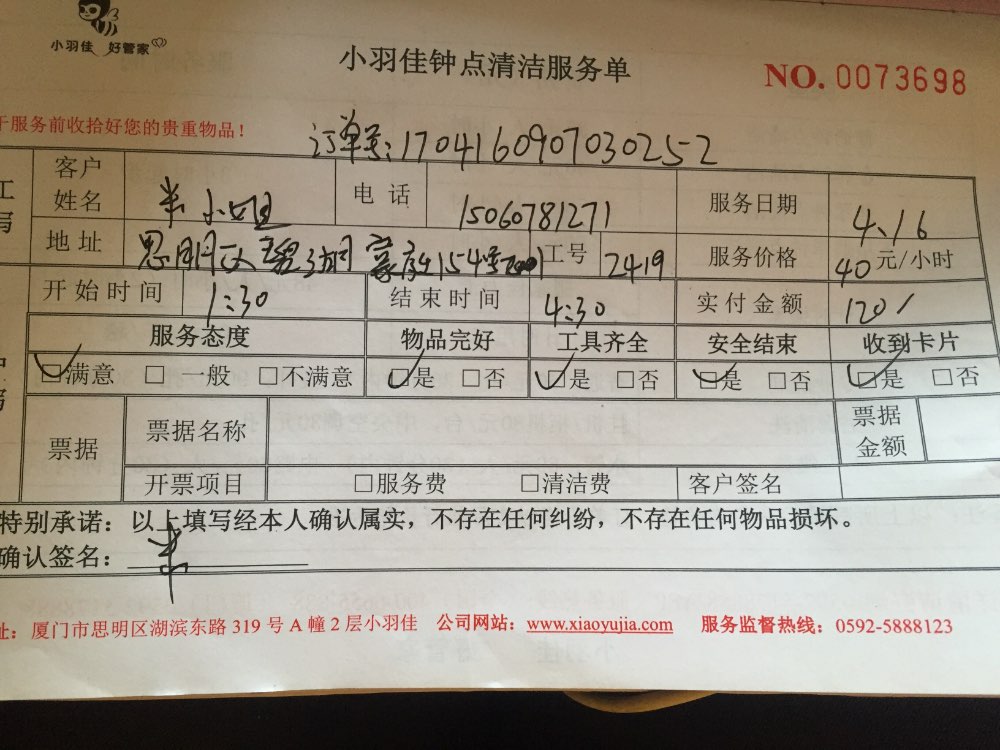 小羽佳 好管家
小羽佳钟点清洁服务单
NO. 0073698
于服务前收拾好您的贵重物品！
订单号：170416090703025 2
客户姓名 米小姐 电话 15060781271 服务日期 4.16
地址 思明区 154号 工号 2419 服务价格 40元/小时
开始时间 1:30 结束时间 4:30 实付金额 120/
服务态度 物品完好 工具齐全 安全结束 收到卡片
☑满意 □一般 □不满意 ☑是 □否 ☑是 □否 ☑是 □否 ☑是 □否
票据 票据名称 票据金额
开票项目 □服务费 □清洁费 客户签名
特别承诺：以上填写经本人确认属实，不存在任何纠纷，不存在任何物品损坏。
确认签名：米
址：厦门市思明区湖滨东路 319 号 A 幢 2 层小羽佳 公司网站：www.xiaoyujia.com 服务监督热线：0592-5888123